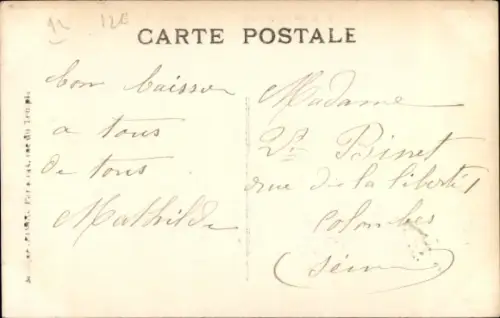 92 12E
CARTE POSTALE
bon baiser
a tous
de tous
Mathilde
Madame
Vve Binet
rue de la liberté
Colombes
(Seine)